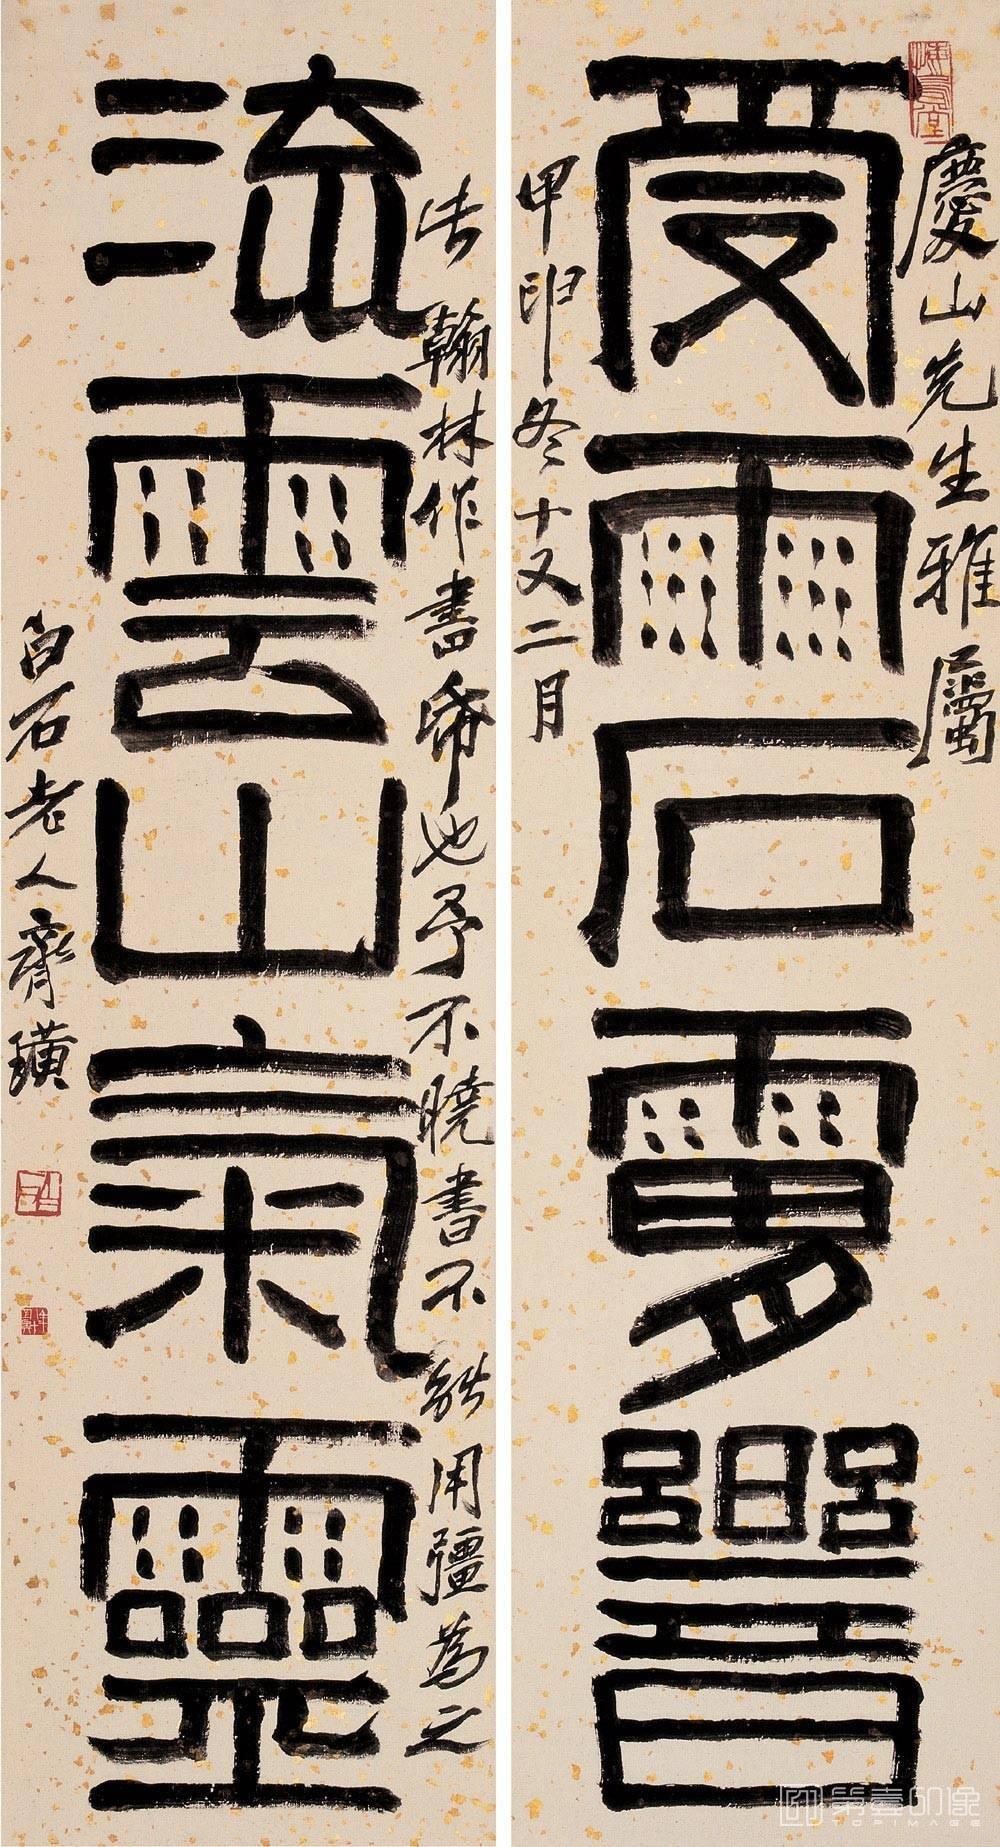 慶山先生雅屬
受雨石響
甲申冬十又二月
翰林作書也予不曉書不能用彊為之
流雲山氣靈
白石老人齊璜
悔烏堂
第壹印像
TOPIMAGE